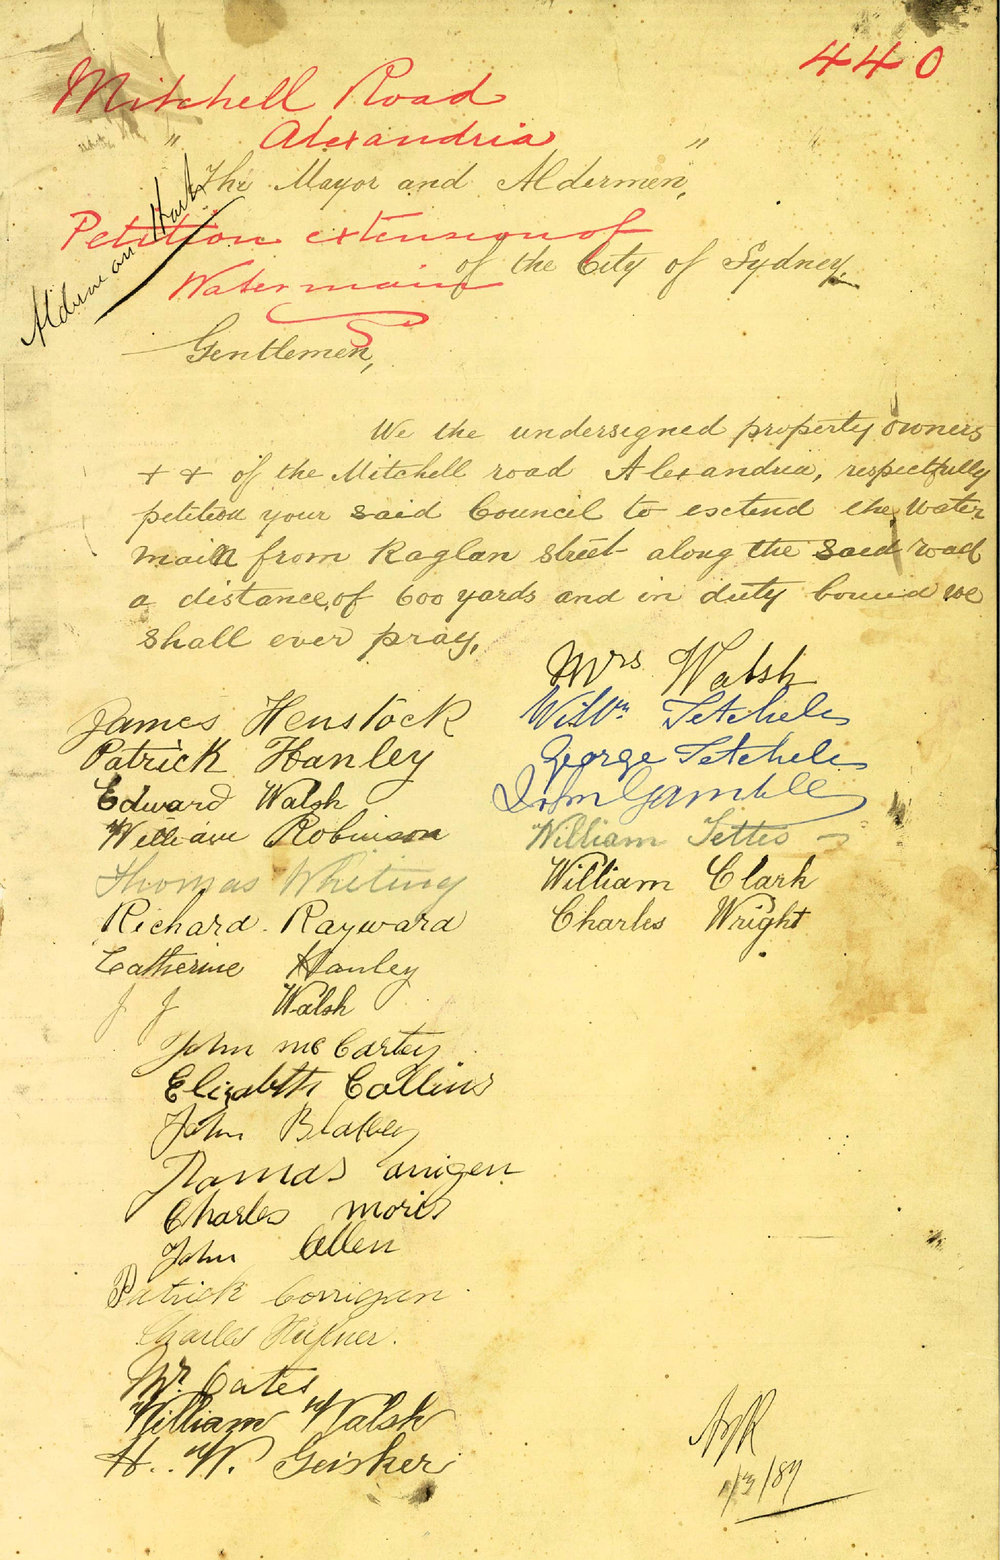 440
Mitchell Road
" Alexandria "
The Mayor and Aldermen,
Alderman Hart
Petition extension of
of the City of Sydney.
Water main
Gentlemen,
We the undersigned property owners
+ + of the Mitchell road Alexandria, respectfully
petition your said Council to esctend the Water
main from Raglan street along the said road
a distance, of 600 yards and in duty bound we
shall ever pray,
Mrs Walsh
Willm Tetchele
George Tetchele
John Gamble
William Tettes
William Clark
Charles Wright
James Henstock
Patrick Hanley
Edward Walsh
William Robinson
Thomas Whiting
Richard Rayward
Catherine Hanley
J J Walsh
John mc Cartey
Elizabeth Collins
John
Charles moris
John Allen
Patrick Corrigan
Charles
Mr. Cates
William Walsh
H. W. Geisker
1/3/87